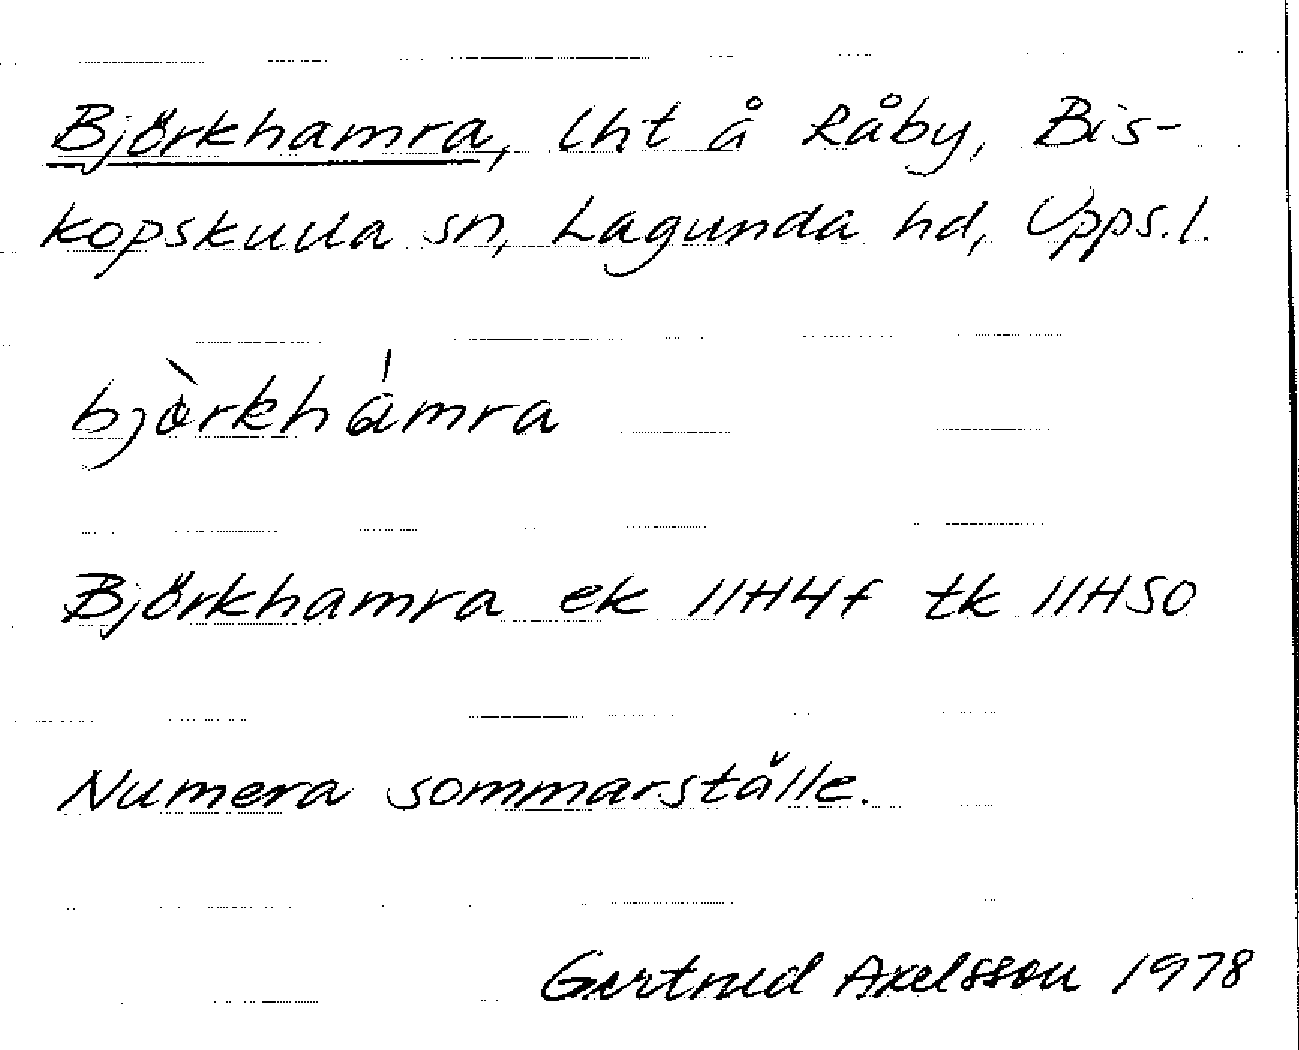 Björkhamra, lht å Råby, Bis-
kopskulla sn, Lagunda hd, Upps.l.
bjòrkhámra
Björkhamra ek 11H4f tk 11HSO
Numera sommarställe.
Gertrud Axelsson 1978